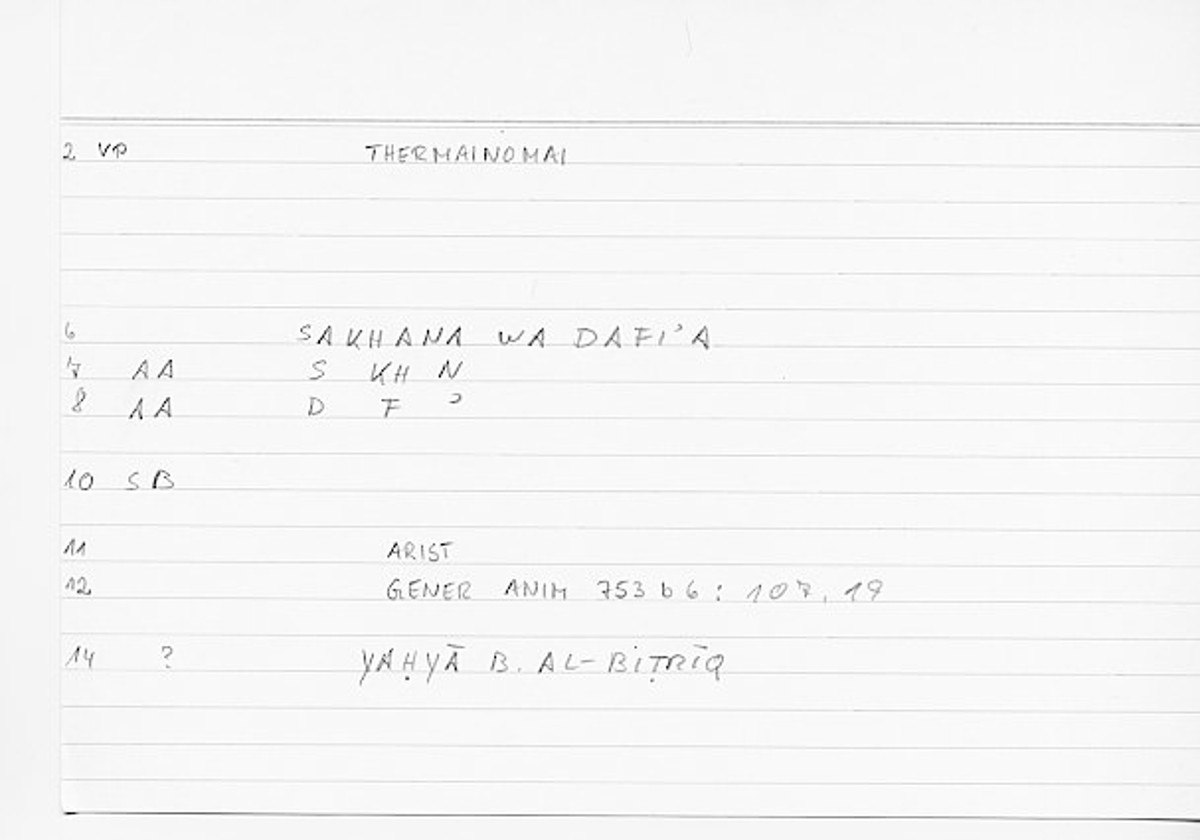 2 VP THERMAINOMAI
6 SAKHANA WA DAFI'A
7 AA S KH N
8 AA D F ʾ
10 SB
11 ARIST
12 GENER ANIM 753 b 6 : 107, 19
14 ? YAḤYĀ B. AL-BIṬRĪQ